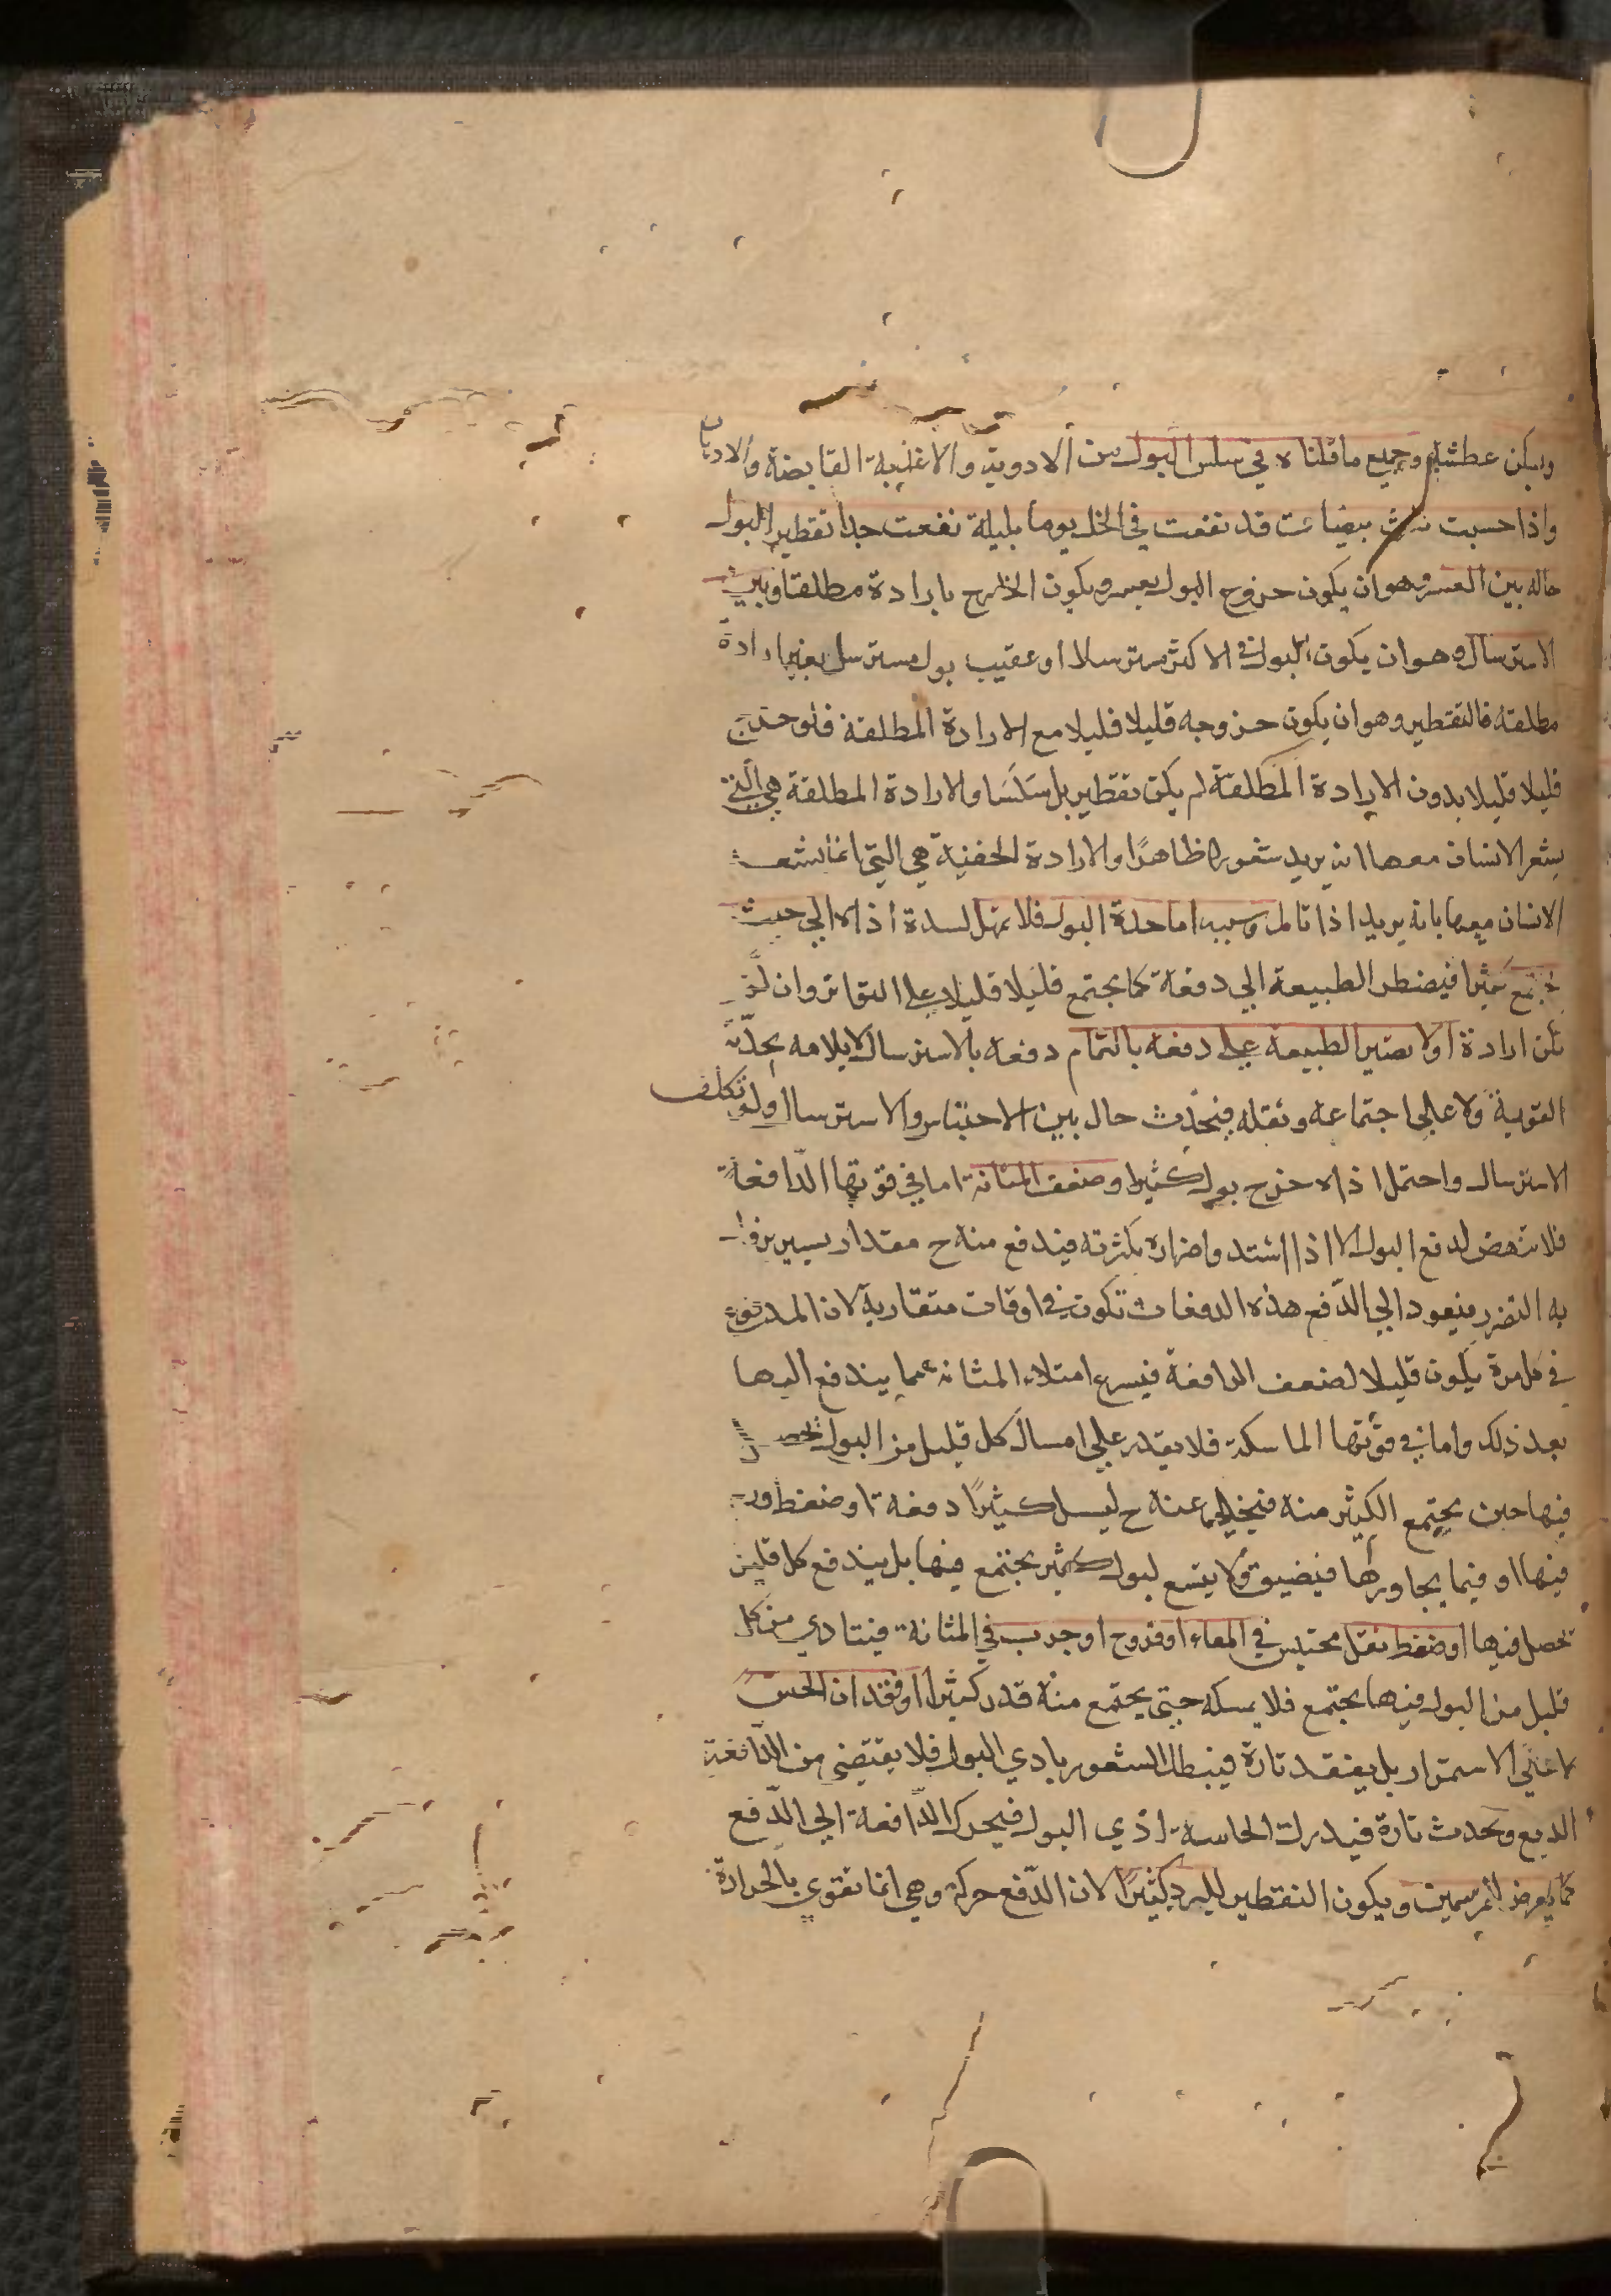 ويسكن عطشه وجميع ما قلناه في سلس البول من الادوية والاغذية القابضة والادهان
واذا حسيت ثلث بيضات قد نقعت في الخل يوما بليلة نفعت جدا تقطير البول
حاله بين العسر وهو ان يكون خروج البول بعسر ويكون الخارج بارادة مطلقا وبين
الاسترسال وهو ان يكون البول في الاكثر مسترسلا او عقيب بول مسترسل بغير ارادة
مطلقه فالتقطير وهو ان يكون خروجه قليلا قليلا مع الارادة المطلقة فلو خرج
قليلا قليلا بدون الارادة المطلقة لم يكن تقطير بل سلسا والارادة المطلقة هي التي
يشعر الانسان معها انه يريد شعورا ظاهرا والارادة الخفية هي التي انما يشعر
الانسان معها بانه يريد اذا تامل وسببه اما حدة البول فلا يمهل لشدة اذاه الي حيث
يجتمع كثيرا فيضطر الطبيعة الي دفعه كما يجتمع قليلا قليلا علي التواتر وان لم
تكن ارادة او لا تصبر الطبيعة علي دفعه بالتمام دفعه بالاسترسال لايلامه بحدته
القوية ولا علي اجتماعه وثقله فيحدث حال بين الاحتباس والاسترسال ولو تكلف
الاسترسال واحتمل اذاه خرج بول كثيرا وضعف المثانة اما في قوتها الدافعة
فلا تنهض لدفع البول الا اذا اشتد واضراره بكثرته فيندفع منه ح مقدار يسير يزول
به التضرر فيعود الي الدفع هذه الدفعات تكون في اوقات متقاربة لان المدفوع
في كل مرة يكون قليلا لضعف الدافعة فيسرع امتلاء المثانه مما يندفع اليها
بعد ذلك واما في قوتها الماسكة فلا يقدر علي امساك كل قليل من البول يحصل
فيها حين يجتمع الكثير منه فيخلي عنه ح ليسل كثيرا دفعة او ضغط ورم
فيها او فيما يجاورها فيضيق ولا يتسع لبول كثير يجتمع فيها بل يندفع كل قليل
تحصل فيها او ضغط ثفل محتبس في المعاء او قروح او جرب في المثانة فيتادي من كل
قليل من البول فيها يجتمع فلا يمسكه حتي يجتمع منه قدر كثيرا او فقدان الحس
لا علي الاستمرار بل يفقد تارة فيبطل الشعور باذي البول فلا يقتضي من الدافعة
الدفع ويحدث تارة فيدرك الحاسة اذي البول فيحرك الدافعة الي الدفع
كما يعرض للمبرسمين ويكون التقطير للبرد كثيرا لان الدفع حركة وهي انما تقوي بالحرارة